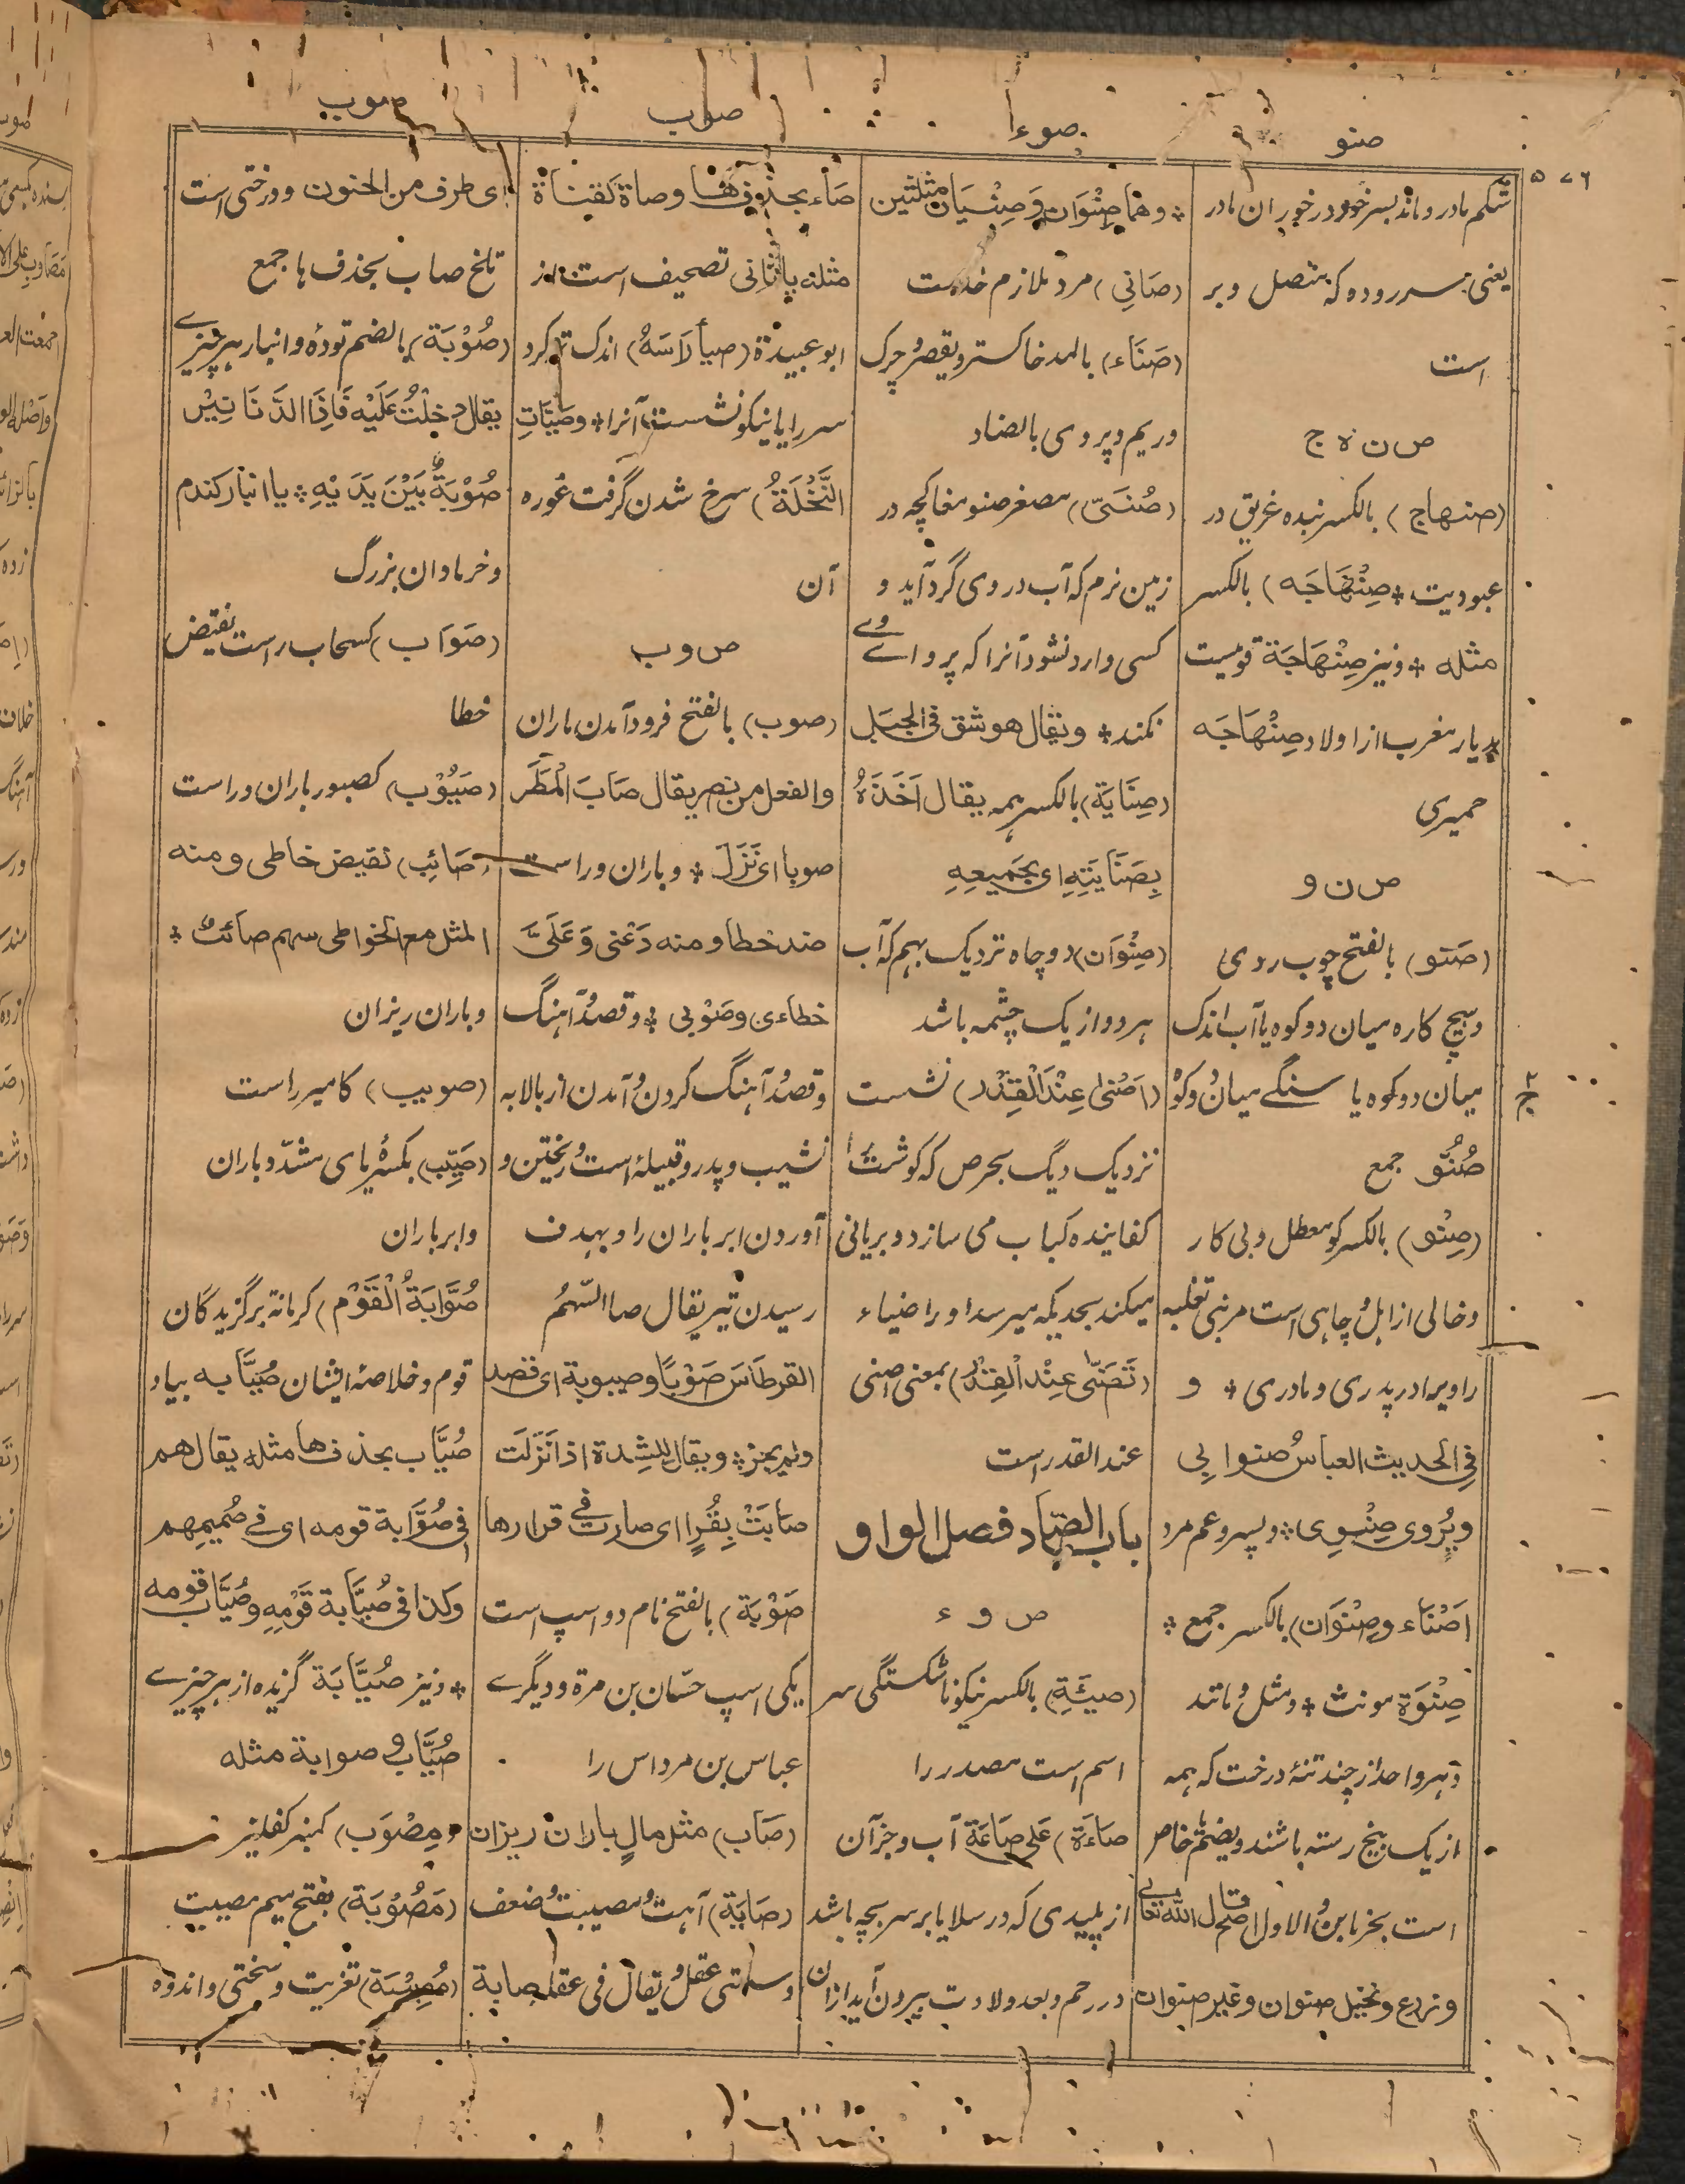 صنو
صوء
صوب
صوب
۵۷۶
شکم مادر و ماند بسر خود در خور ان مادر
یعنی سررودہ که متصل و بر
است
ص ن ہ ج
(صنهاج) بالکسر بنده غریق در
عبودیت * صِنْهَاجَه) بالکسر
مثله * و نیز صِنْهَاجَة قومیست
بدیار مغرب از اولاد صِنْهَاجَه
حمیری
ص ن و
(صَنو) بالفتح چوب ردی
و هیچ کاره میان دو کوه یا آب اندک
میان دو کوه یا سنگے میان دو کوہ
صُنُوّ جمع
(صِنْو) بالکسر کو معطل و بی کار
و خالی از اہل و چاہی است مر بنی تغلبہ
را و برادر پدری و مادری * و
فی الحدیث العباسُ صنو ابِی
و یُروی صِنْوِی * و پسر و عم مرد
اَصْنَاء و صِنْوَان) بالکسر جمع *
صِنْوَة مونث * و مثل و مانند
و ہر واحد از چند تنۂ درخت کہ ہمہ
از یک بیخ رستہ باشند و یضم یا خاص
است بخرما بن و الاول اصح قال الله تعالی
و زرع و نخیل صنوان و غیر صنوان
* و هما صِنْوَان وَ صِنْیَان مثلثین
(صَانِی) مرد ملازم خدمت
(صَنَاء) بالمد خاکستر و یقصر و چرک
و ریم و پر وسی بالضاد
(صُنَیّ) مصغر صنو مغاکچه در
زمین نرم که آب در وی گرد آید و
کسی وارد نشود آنرا که پروای وے
نکند * و یقال هو شق فی الجبل
(صِنَایَة) بالکسر ہمہ یقال اَخَذَهُ
بِصَنَایَتِهِ ای بجَمیعِهِ
(صِنْوَان) دو چاہ نزدیک بہم کہ آب
ہر دو از یک چشمہ باشد
(اَصْنیٰ عِنْدَ الْقِدْر) نشست
نزدیک دیگ بحرص کہ گوشت را
کفایندہ کباب می سازد و بریانی
میکند بحدیکہ میرسد او را ضیاء
(تَصَنّٰی عِنْدَ الْقِدْر) بمعنی اصنی
عند القدر است
باب الصاد فصل الواو
ص و ء
(صیئَةِ) بالکسر نیکو نا شکستگی سر
اسم است مصدر را
صاءَة) عَلی صَاعَة آب و جز آن
از پلیدی کہ در سلایا بر سر بچہ باشد
در رحم و بعد ولادت بیرون آید از ان
صَاء بحذف ها و صاة کقناة
مثله یا ثانی تصحیف است از
ابو عبیدة (صیأ رَاسَهُ) اندک تر کرد
سر را یا نیکو نشست آنرا * و صَیَّاَتِ
النَّخْلَةُ) سرخ شدن گرفت غوره
آن
ص و ب
(صوب) بالفتح فرود آمدن باران
والفعل من نصر یقال صَابَ الْمَطَر
صوبا ای نَزَلَ * و باران و راست
ضد خطا و منه دَعْنی وَ عَلَیَّ
خطاءی و صَوْبی * و قصد و آہنگ
و قصد و آہنگ کردن و آمدن از بالا بہ
نشیب و پدر و قبیلہ است و ریختن و
آوردن ابر باران را و بہدف
رسیدن تیر یقال صا السَّهمُ
القرطاسَ صَوْبًا و صیبوبة ای قصد
ولم یجز * و یقال للشدة اذا نَزَلَت
صَابَتْ بِقُرٍّ ای صارت فی قرارها
صَوْبَة) بالفتح نام دو اسپ است
یکی اسپ حسّان بن مرة و دیگرے
عباس بن مرداس را
(صَاب) مثل مال باران ریزان
(صَابَة) آہنت و مصیبت و ضعف
و سلمتی عقل و یقال فی عقلہ صابة
ای طرف من الجنون و درختی است
تلخ صاب بحذف ہا جمع
(صُوْبَة) بالضم تودہ و انبار ہر چیزے
یقال دخلْتُ عَلَیْه فَاِذَا الدَّنَانِیْرُ
صُوْبَةٌ بَیْنَ یَدَیْهِ * یا انبار گندم
و خرما و ان بزرگ
(صَوَاب) کسحاب راست نقیض
خطا
(صَیُوْب) کصبور باران و راست
(صَائِب) نقیض خاطی و منه
المثل مع الخواطی سهم صائبٌ *
و باران ریزان
(صویب) کامیر راست
(صَیِّب) بکسرۂ یای مشدد باران
و ابر باران
صُوَّابَةُ الْقَوْم) کرمانة برگزیدگان
قوم و خلاصہ ایشان صُیَّابه بیاء و
صُیَّاب بحذف ها مثله یقال هم
فی صُوَّابة قومه ای فی صُمیمِهِم
و کذا فی صُیَّابة قَوْمِهِ و صُیَّاب قومه
* و نیز صُیَّابَة گزیده از ہر چیزے
صُیَّاب و صوابة مثله
و مِصْوَب) کمنبر کفلیز
(مَصُوْبَة) بفتح میم مصیبت
(مُصِیْبَة) تعزیت و سختی و اندوه